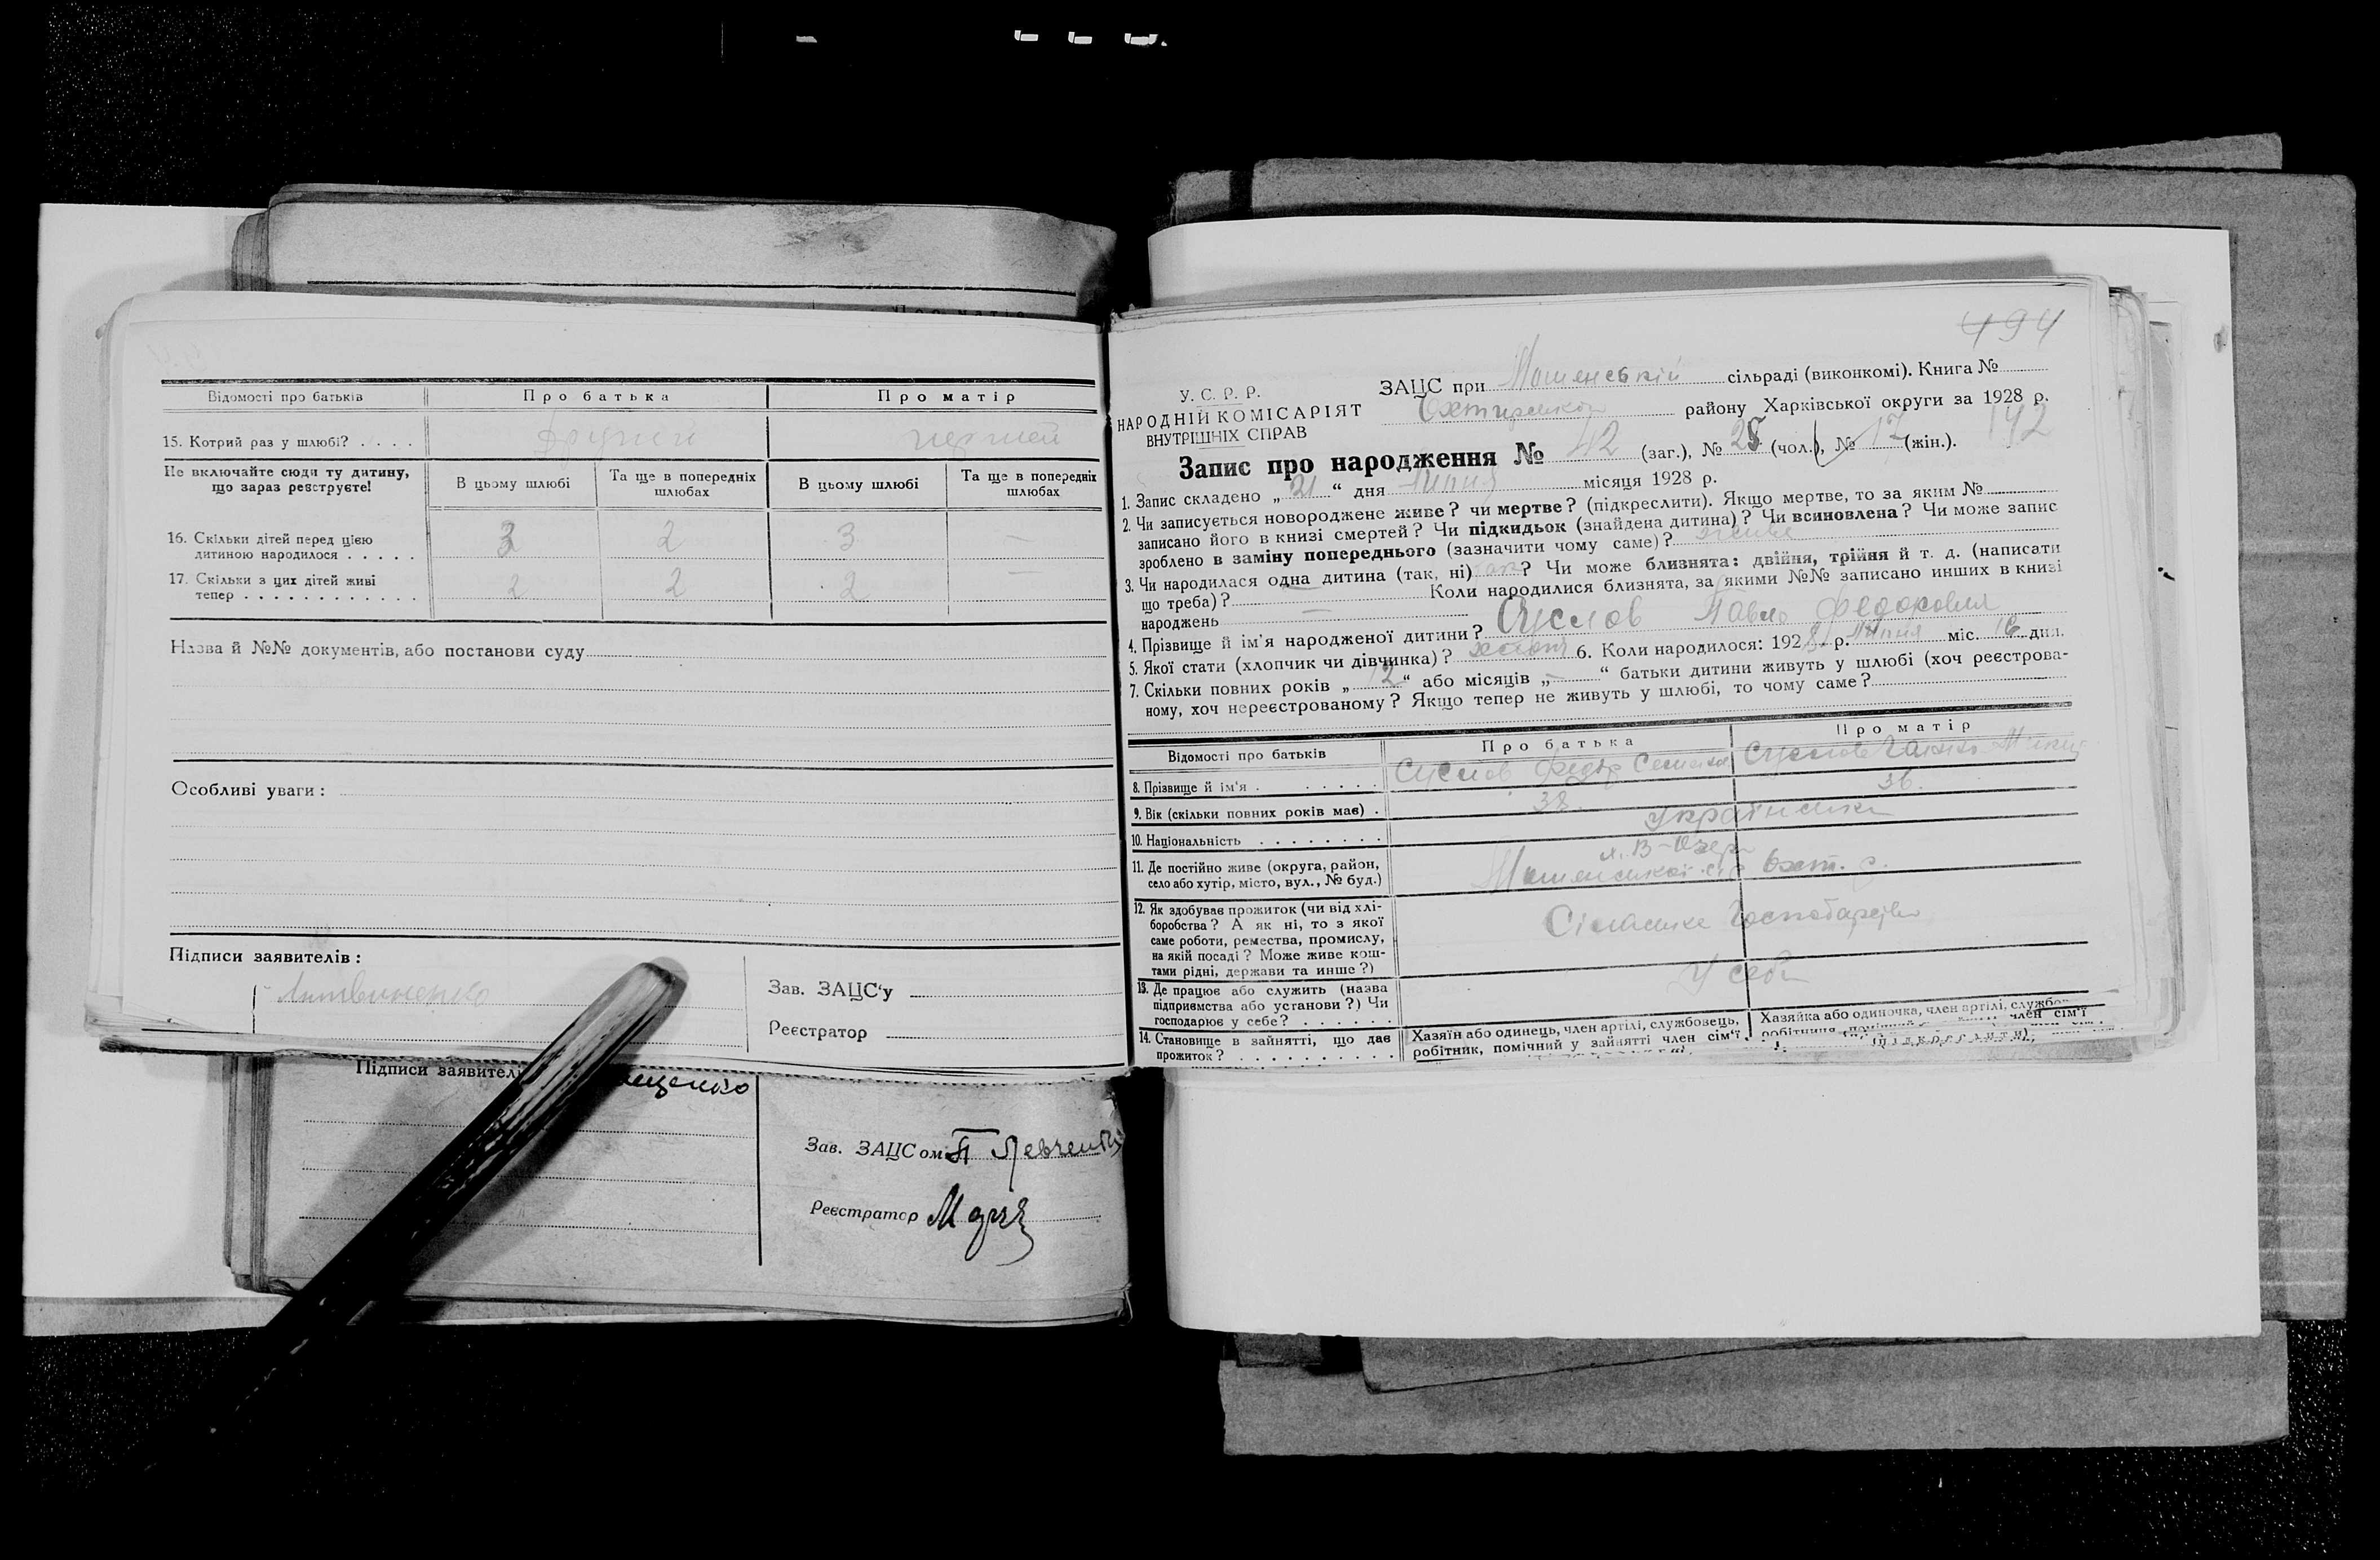 Відомості про батьків
Про батька
Про матір
15. Котрий раз у шлюбі? . . . .
другий
першей
Не включайте сюди ту дитину,
що зараз реєструєте!
В цьому шлюбі
Та ще в попередніх
шлюбах
В цьому шлюбі
Та ще в попередніх
шлюбах
16. Скільки дітей перед цією
дитиною народилося . . . . .
3
2
3
—
17. Скільки з цих дітей живі
тепер . . . . . . . . . . . .
2
2
2
—
Назва й №№ документів, або постанови суду
Особливі уваги:
Підписи заявителів:
Литвиненко
Зав. ЗАЦС'у
Реєстратор
Підписи заявителі
ещенко
Зав. ЗАЦСом П Левченко
Реєстратор
494
У. С. Р. Р.
НАРОДНІЙ КОМІСАРІЯТ
ВНУТРІШНІХ СПРАВ
ЗАЦС при Мошенській сільраді (виконкомі). Книга №
Охтирського району Харківської округи за 1928 р.
142
Запис про народження № 42 (заг.), № 25 (чол.), № 17 (жін.).
1. Запис складено „21“ дня липня місяця 1928 р.
2. Чи записується новороджене живе? чи мертве? (підкреслити). Якщо мертве, то за яким №
записано його в книзі смертей? Чи підкидьок (знайдена дитина)? Чи всиновлена? Чи може запис
зроблено в заміну попереднього (зазначити чому саме)? живе
3. Чи народилася одна дитина (так, ні) так? Чи може близнята: двійня, трійня й т. д. (написати
що треба)? — Коли народилися близнята, за якими №№ записано инших в книзі
народжень —
4. Прізвище й ім'я народженої дитини? Суслов Павло Федорович
5. Якої стати (хлопчик чи дівчинка)? хлопч 6. Коли народилося: 1928 р. липня міс. 16 дня.
7. Скільки повних років „12“ або місяців „—“ батьки дитини живуть у шлюбі (хоч реєстрова-
ному, хоч нереєстрованому? Якщо тепер не живуть у шлюбі, то чому саме?
Відомості про батьків
Про батька
Про матір
8. Прізвище й ім'я . . . . . .
Суслов Федір Семенов
Суслова Ганна
9. Вік (скільки повних років має) .
38.
36.
10. Національність . . . . . . . .
українська
11. Де постійно живе (округа, район,
село або хутір, місто, вул., № буд.)
х. В-Озер
Мошенської с/р Охт. р.
12. Як здобуває прожиток (чи від хлі-
боробства? А як ні, то з якої
саме роботи, ремества, промислу,
на якій посаді? Може живе кош-
тами рідні, держави та инше?)
Сільське господарство
13. Де працює або служить (назва
підприємства або установи?) Чи
господарює у себе? . . . . . .
У себе
14. Становище в зайнятті, що дає
прожиток? . . . . . . . . . .
Хазяїн або одинець, член артілі, службовець,
робітник, помічний у зайнятті член сім'ї
Хазяйка або одиночка, член артілі, службо
робітниця, член сім'ї
(підкреслити)